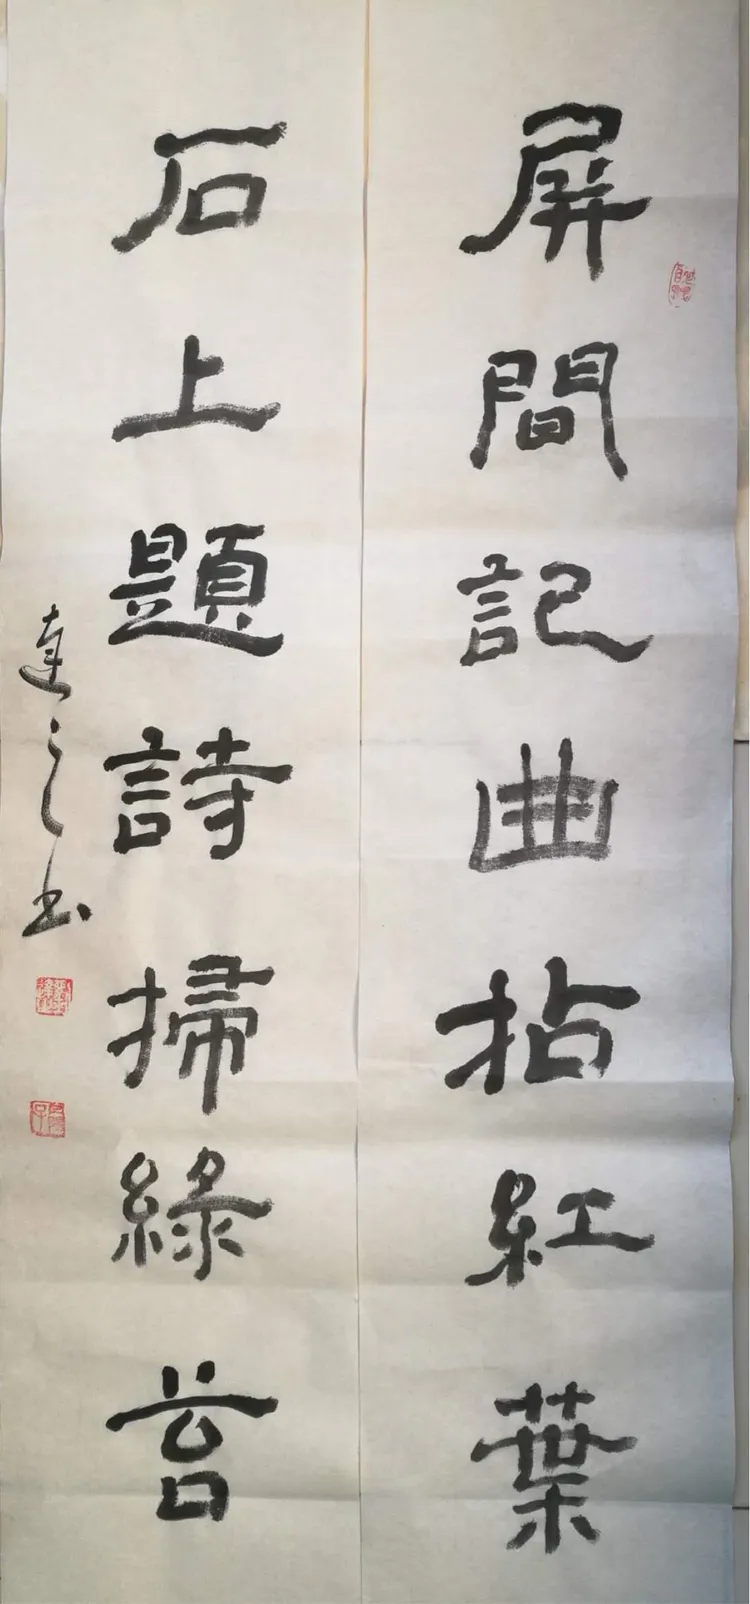 屏間記曲拈紅葉
石上題詩掃綠苔
達之书